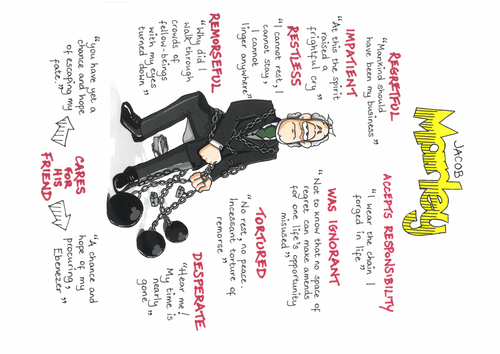 JACOB
Marley
REGRETFUL
"Mankind should
have been my business"
IMPATIENT
"At this the spirit
raised a
frightful cry"
RESTLESS
"I cannot rest, I
cannot stay,
I cannot
linger anywhere"
REMORSEFUL
"Why did I
walk through
crowds of
fellow-beings
with my eyes
turned down"
ACCEPTS RESPONSIBILITY
"I wear the chain I
forged in life"
WAS IGNORANT
"Not to know that no space of
regret can make amends
for one life's opportunity
misused"
TORTURED
"No rest, no peace.
Incessant torture of
remorse"
DESPERATE
"Hear me!
My time is
nearly
gone"
"you have yet a
chance and hope
of escaping my
fate."
CARES
FOR
HIS
FRIEND
"A chance and
hope of my
procuring,
Ebenezer"